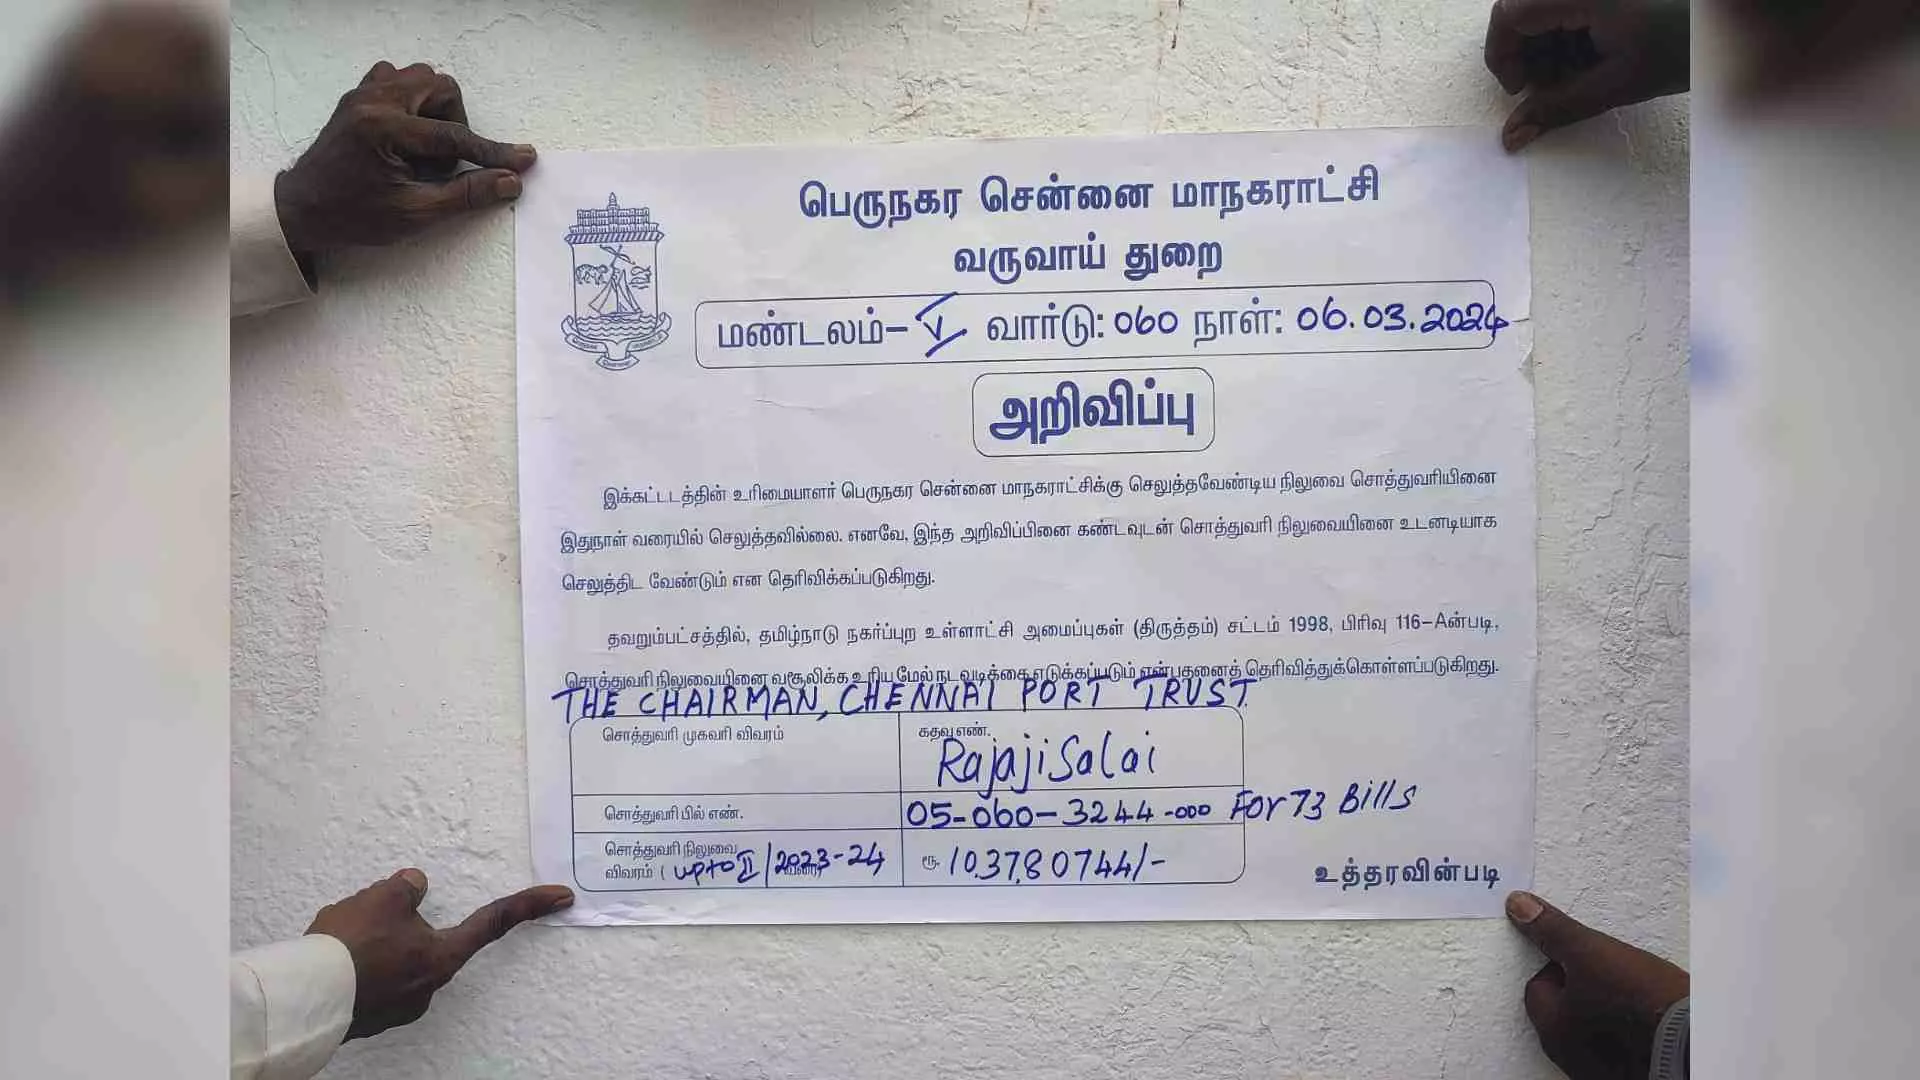 பெருநகர சென்னை மாநகராட்சி
வருவாய் துறை
மண்டலம்- V வார்டு: 060 நாள்: 06.03.2024
அறிவிப்பு
இக்கட்டடத்தின் உரிமையாளர் பெருநகர சென்னை மாநகராட்சிக்கு செலுத்தவேண்டிய நிலுவை சொத்துவரியினை
இதுநாள் வரையில் செலுத்தவில்லை. எனவே, இந்த அறிவிப்பினை கண்டவுடன் சொத்துவரி நிலுவையினை உடனடியாக
செலுத்திட வேண்டும் என தெரிவிக்கப்படுகிறது.
தவறும்பட்சத்தில், தமிழ்நாடு நகர்ப்புற உள்ளாட்சி அமைப்புகள் (திருத்தம்) சட்டம் 1998, பிரிவு 116-Aன்படி,
சொத்துவரி நிலுவையினை வசூலிக்க உரிய மேல் நடவடிக்கை எடுக்கப்படும் என்பதனைத் தெரிவித்துக்கொள்ளப்படுகிறது.
THE CHAIRMAN, CHENNAI PORT TRUST.
சொத்துவரி முகவரி விவரம் கதவு எண்.
Rajaji Salai
சொத்துவரி பில் எண். 05-060-3244-000 For 73 Bills
சொத்துவரி நிலுவை
விவரம் ( upto II/2023-24 வரை) ரூ. 10,37,80744/-
உத்தரவின்படி